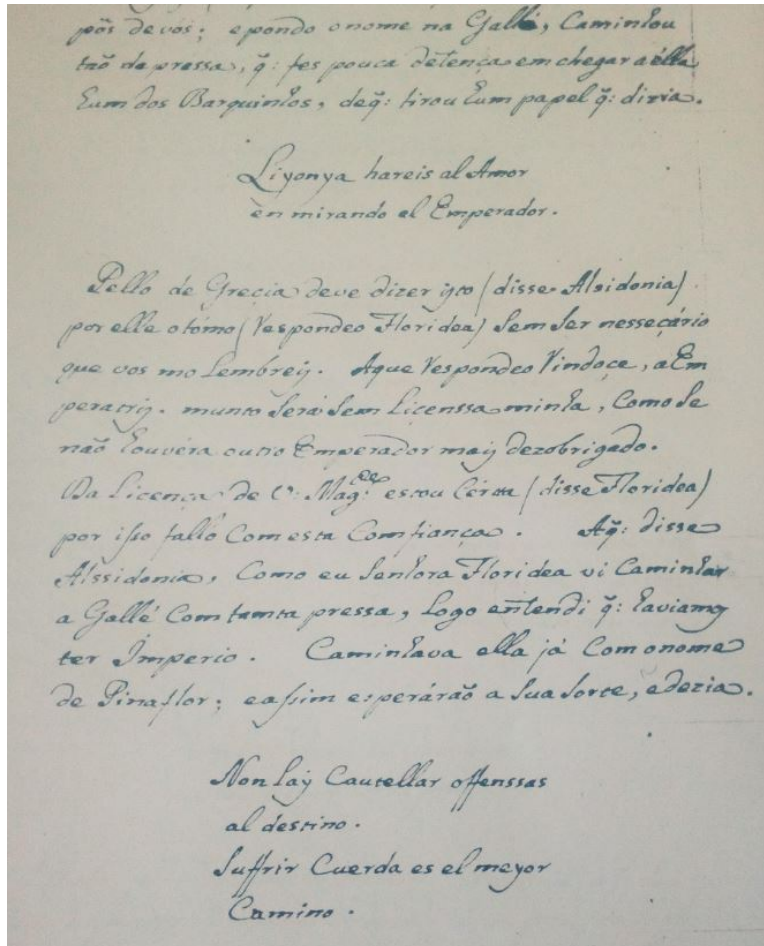 pōs de vós; e pondo o nome na Gallé, Caminhou
taõ depressa, q̃: fes pouca detença em chegar a élla
hum dos Barquinhos, deq̃: tirou hum papel q̃: dizia.
Liyonya hareis al Amor
en mirando al Emperador.
Pello de Grecia deve dizer isto (disse Alsidonia)
por elle o tómo (Respondeo Floridea) Sem Ser nessecário
que vos mo Lembreis. Aque Respondeo Vindoce, a Em
peratris. munto Será Sem Licenssa minha, Como Se
não houvéra outro Emperador mais dezobrigado.
Da Licença de V: Mag.de estou Cérta (disse Floridea)
por isso fallo Com esta Comfiança. Aq̃: disse
Alssidonia, Como eu Senhora Floridea vi Caminhar
a Gallé Com tamta pressa, Logo entendi q̃: haviamos
ter Imperio. Caminhava ella já Com o nome
de Pinaflor; e assim esperáraõ a Sua Sorte, e dezia.
Non hay Cautellar offenssas
al destino.
Suffrir Cuerda es el meyor
Camino.